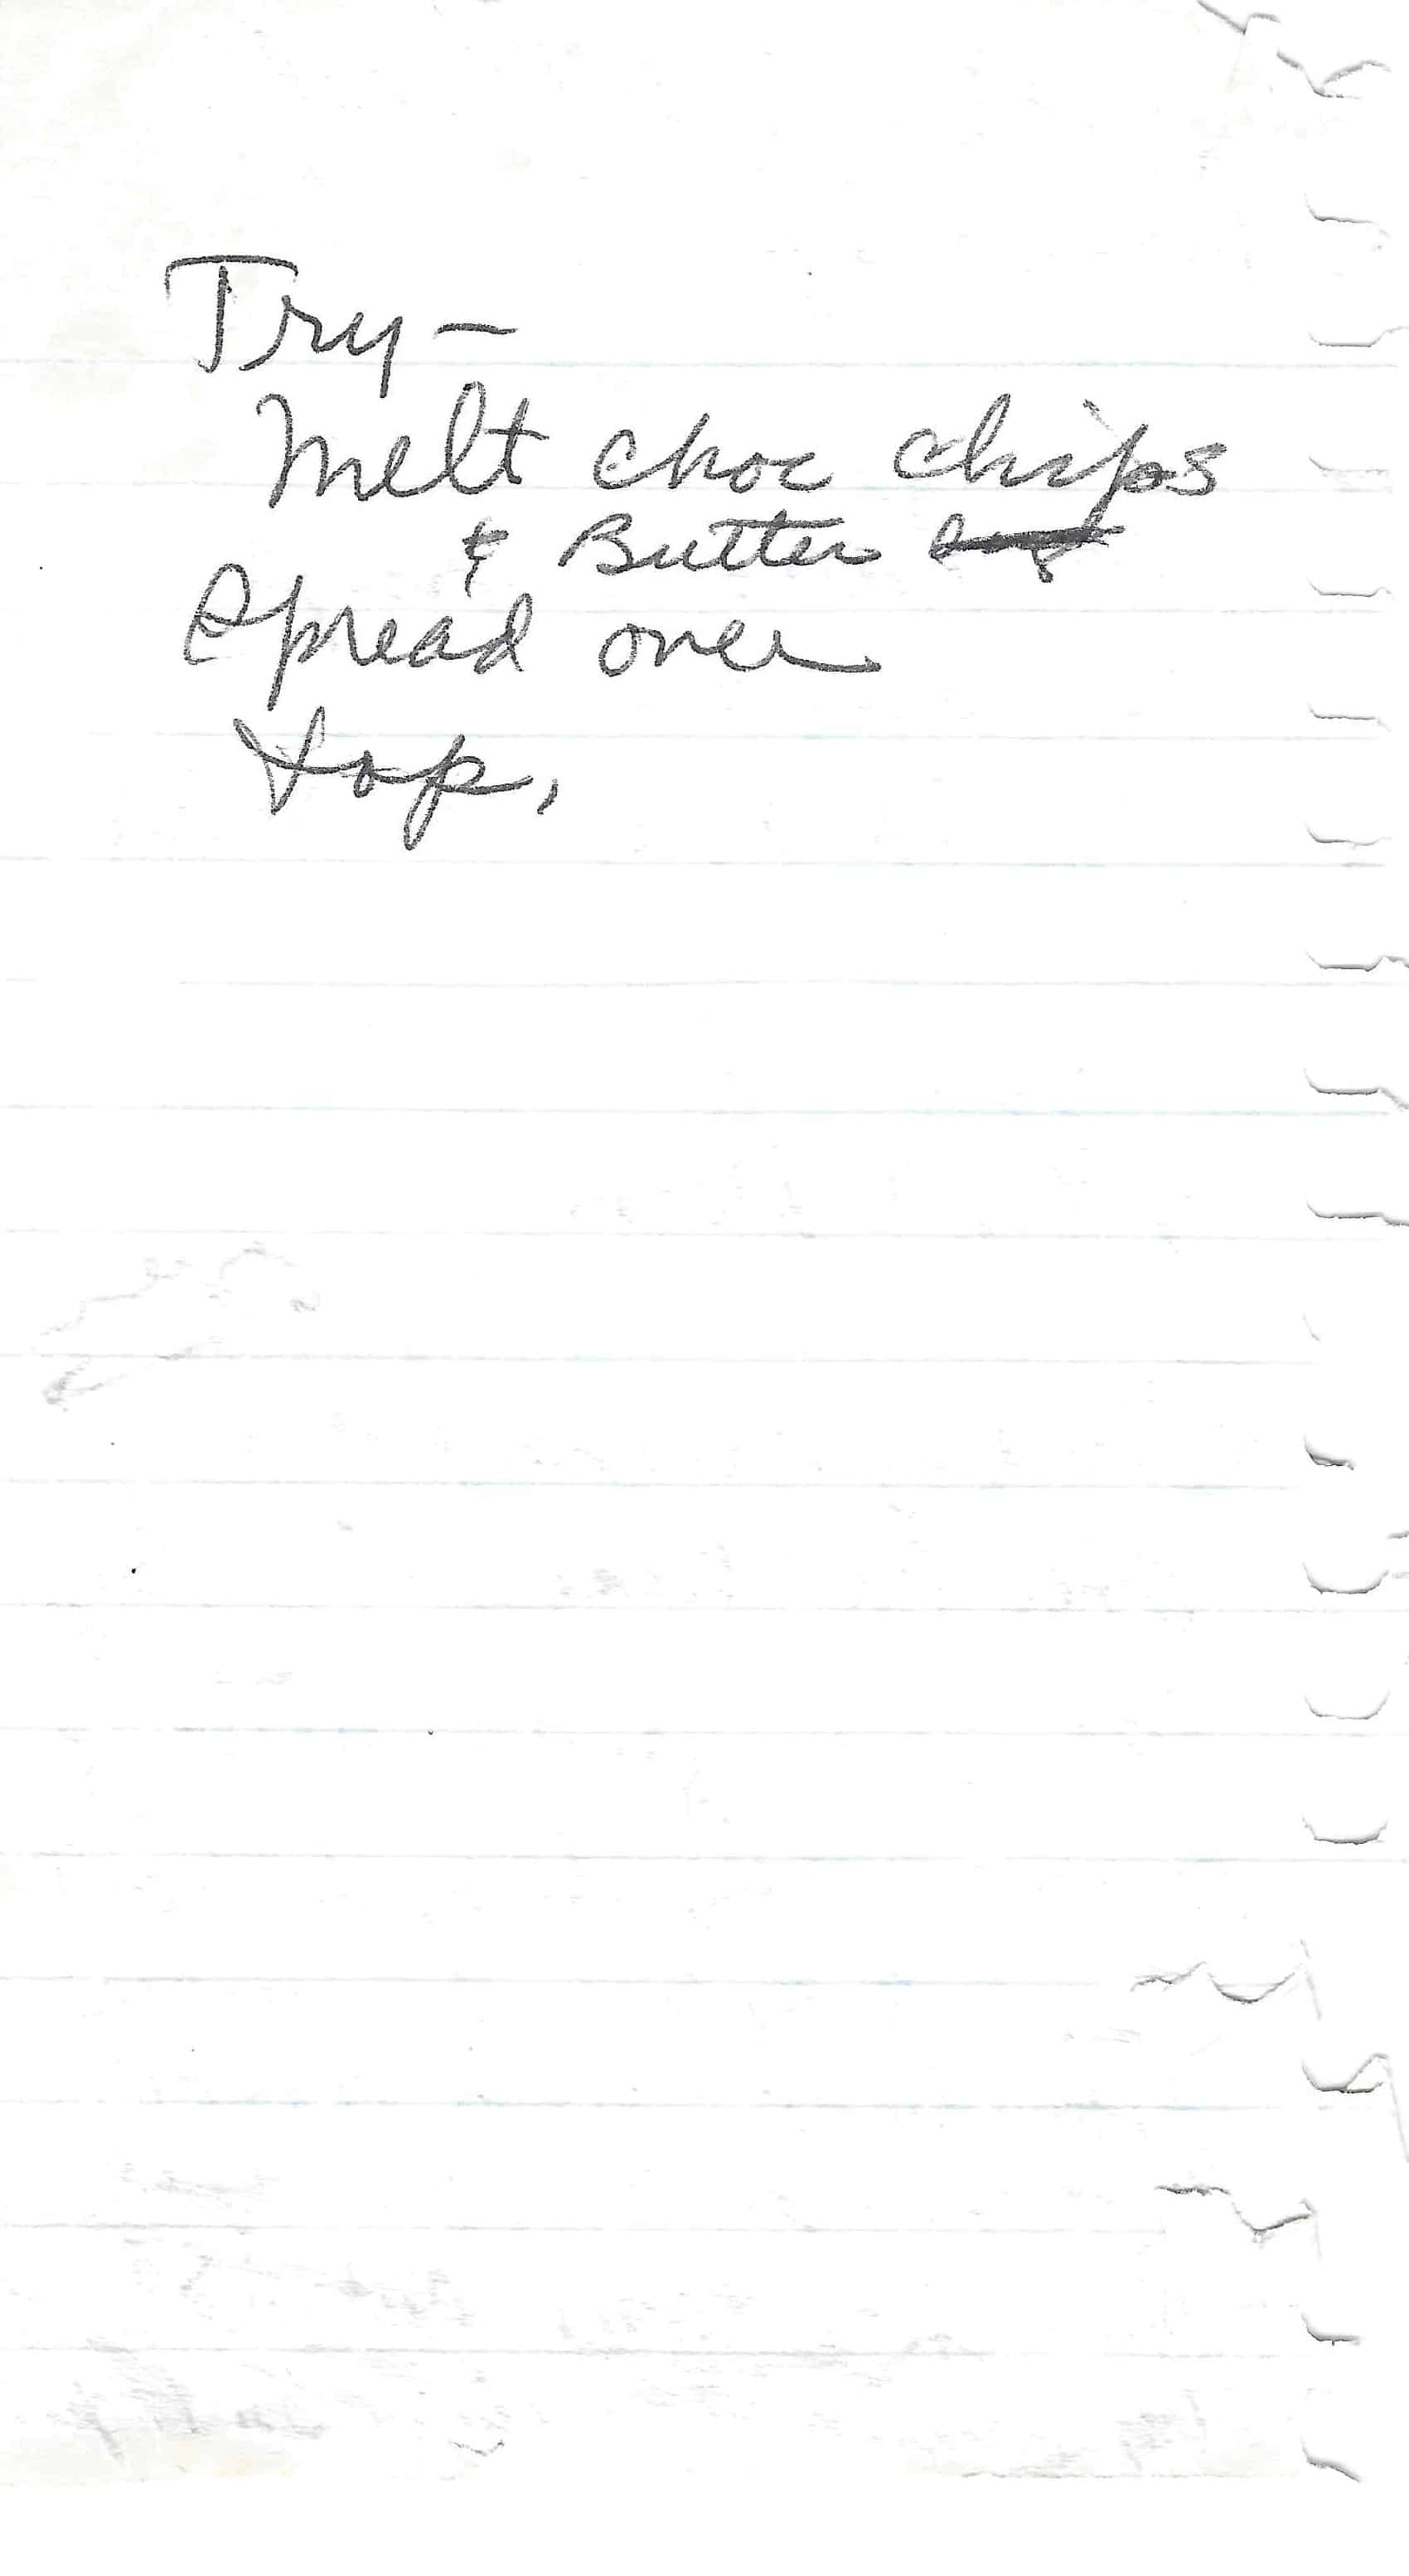 Try -
Melt choc chips
& Butter
Spread over
top,